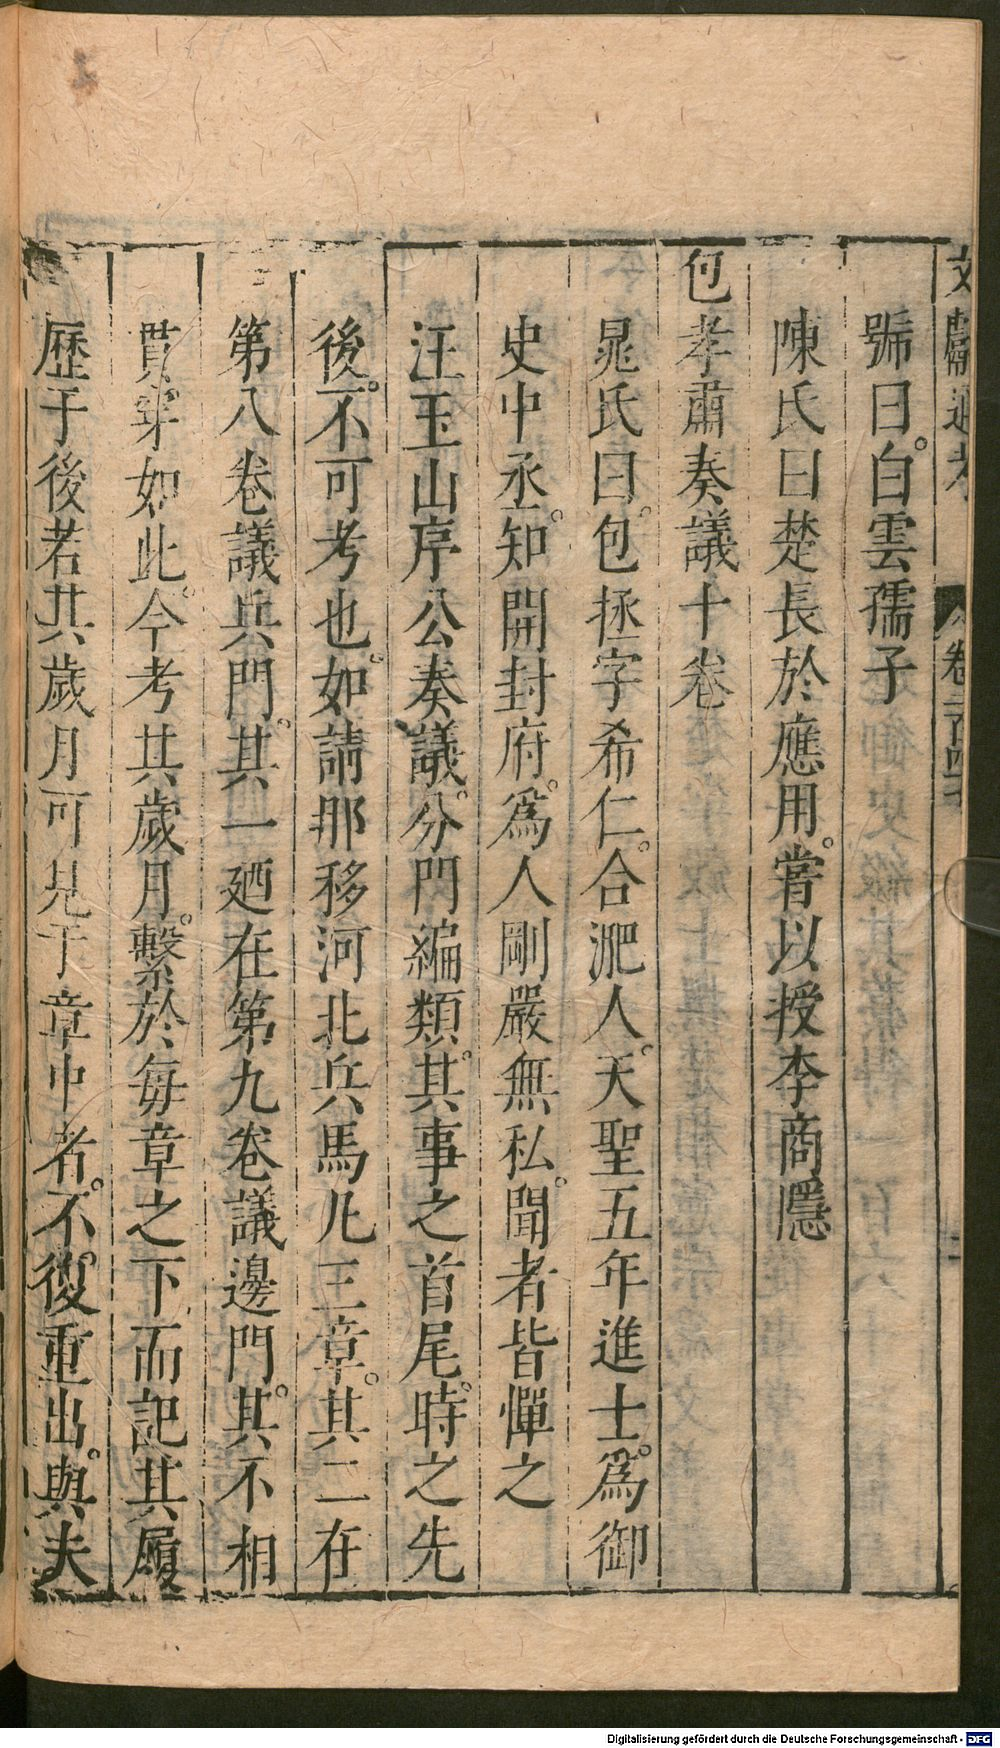 文獻通考 卷二百四十 二
號曰。白雲孺子
陳氏曰楚長於應用。嘗以授李商隱
包孝肅奏議十卷
晁氏曰。包拯字希仁。合淝人。天聖五年進士。爲御
史中丞。知開封府。爲人剛嚴無私。聞者皆憚之
汪玉山序公奏議。分門編類。其事之首尾。時之先
後。不可考也。如請那移河北兵馬凡三章。其二在
第八卷議兵門。其一廼在第九卷議邊門。其不相
貫穿如此。今考其歲月。繫於每章之下而記其履
歷于後若其歲月可見于章中者。不復重出。與夫
Digitalisierung gefördert durch die Deutsche Forschungsgemeinschaft - DFG